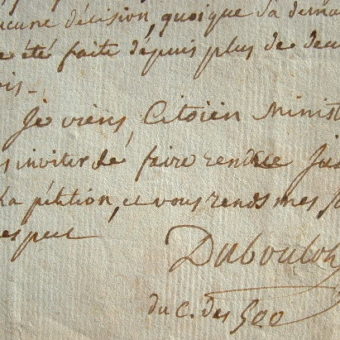 aucune décision, quoique sa dema
été faite depuis plus de deu
is.
Je viens, Citoien Minist
s inviter de faire rendre Jus
la pétition, et vous rends mes
espect
Duboulo
du C. des 500